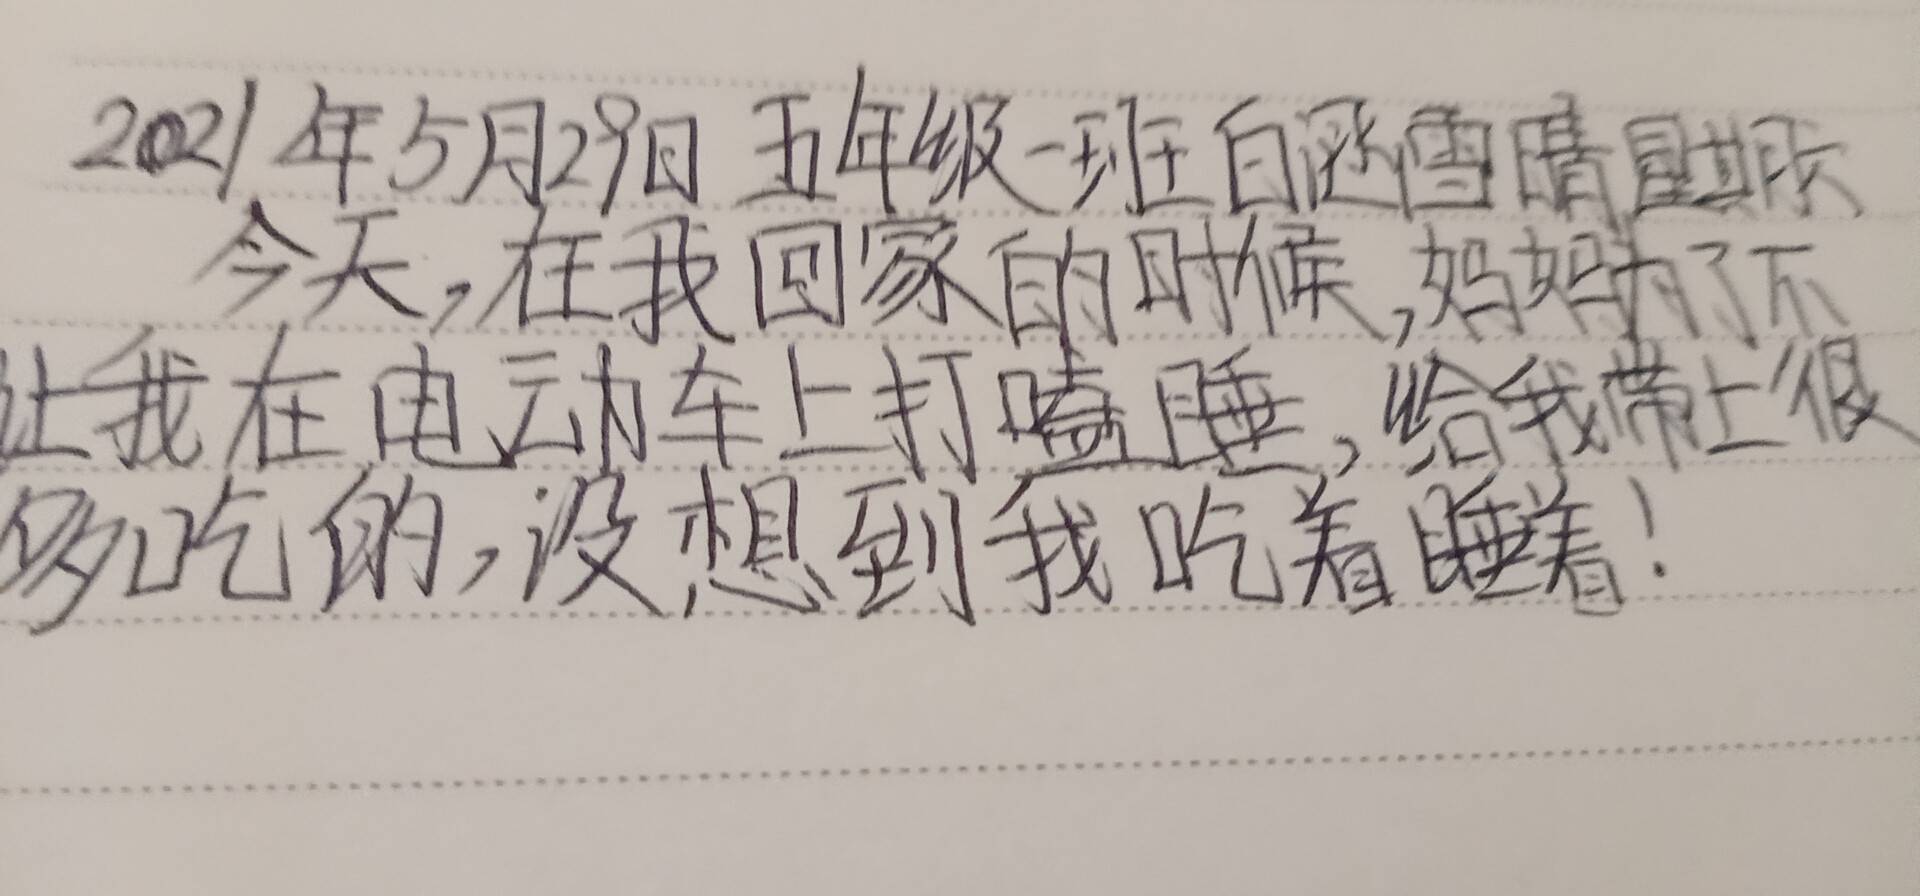 2021年5月29日 五年级一班 白涵雪 晴 星期
今天,在我回家的时候,妈妈为了不
让我在电动车上打嗑睡,给我带上很
多吃的,没想到我吃着睡着!